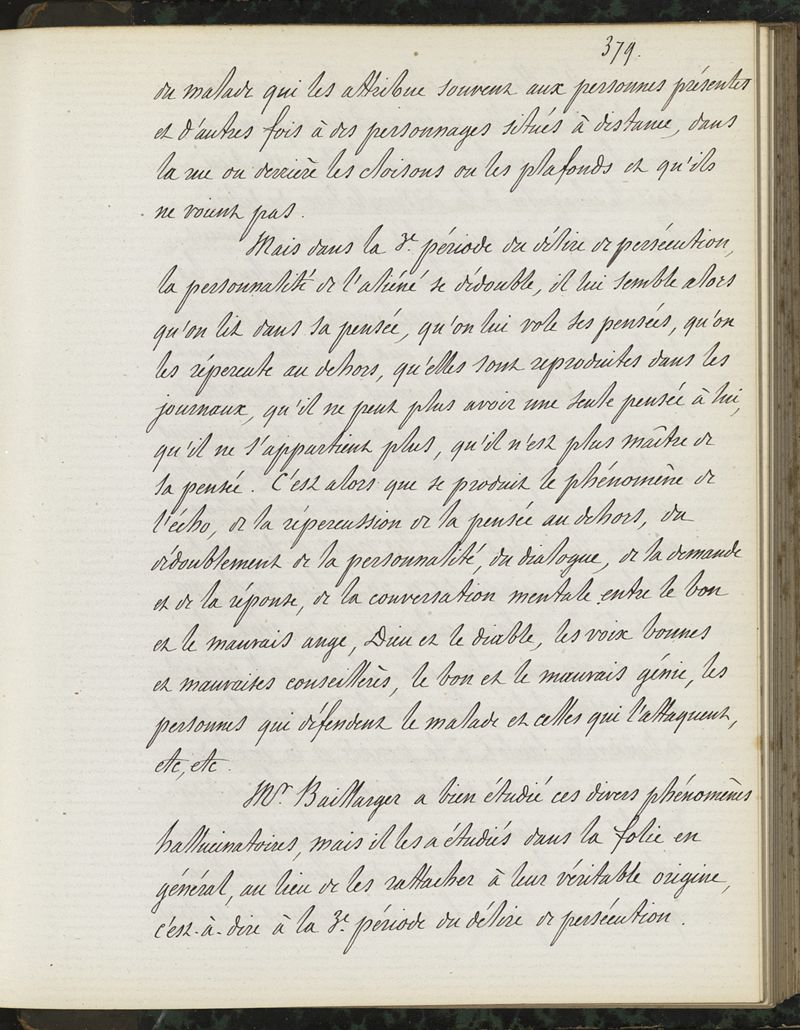 379.
du malade qui les attribue souvent aux personnes présentes
et d'autres fois à des personnages situés à distance, dans
la rue ou derrière les cloisons ou les plafonds et qu'ils
ne voient pas.
Mais dans la 3e. période du délire de persécution,
la personnalité de l'aliéné se dédouble, il lui semble alors
qu'on lit dans sa pensée, qu'on lui vole ses pensées, qu'on
les répercute au dehors, qu'elles sont reproduites dans les
journaux, qu'il ne peut plus avoir une seule pensée à lui,
qu'il ne s'appartient plus, qu'il n'est plus maître de
sa pensée. C'est alors que se produit le phénomène de
l'écho, de la répercussion de la pensée au dehors, du
dédoublement de la personnalité, du dialogue, de la demande
et de la réponse, de la conversation mentale entre le bon
et le mauvais ange, Dieu et le diable, les voix bonnes
et mauvaises conseillères, le bon et le mauvais génie, les
personnes qui défendent le malade et celles qui l'attaquent,
etc, etc.
Mr. Baillarger a bien étudié ces divers phénomènes
hallucinatoires, mais il les a étudiés dans la folie en
général, au lieu de les rattacher à leur véritable origine,
c'est-à-dire à la 3e. période du délire de persécution.